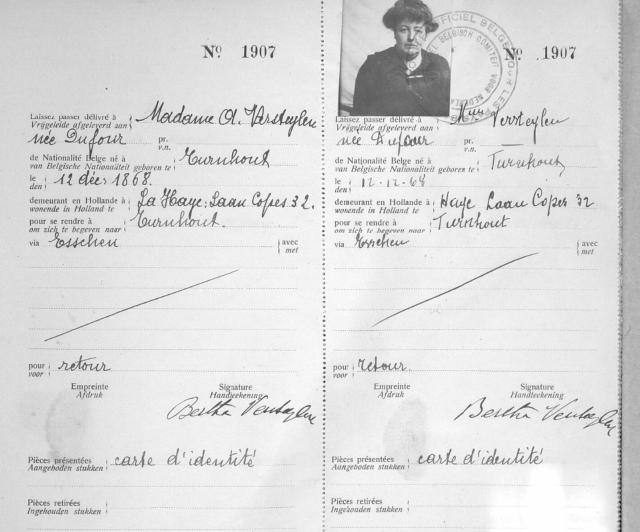 No 1907
Laissez passer délivré à
Vrijgeleide afgeleverd aan
Madame A. Versteylen
née Dufour
pr.
v.n.
de Nationalité Belge né à
van Belgische Nationaliteit geboren te
Turnhout
le
den
12 déc 1868.
demeurant en Hollande à
wonende in Holland te
La Haye: Laan Copes 32.
pour se rendre à
om zich te begeven naar
Turnhout.
via Esschen
avec
met
pour
voor
retour
Empreinte
Afdruk
Signature
Handteekening
Bertha Versteylen
Pièces présentées
Aangeboden stukken
carte d'identité
Pièces retirées
Ingehouden stukken
No 1907
Laissez passer délivré à
Vrijgeleide afgeleverd aan
Mme Versteylen
née Dufour
pr.
v.n.
de Nationalité Belge né à
van Belgische Nationaliteit geboren te
Turnhout
le
den
12-12-68
demeurant en Hollande à
wonende in Holland te
Haye Laan Copes 32
pour se rendre à
om zich te begeven naar
Turnhout
via Esschen
avec
met
pour
voor
retour.
Empreinte
Afdruk
Signature
Handteekening
Bertha Versteylen
Pièces présentées
Aangeboden stukken
carte d'identité
Pièces retirées
Ingehouden stukken